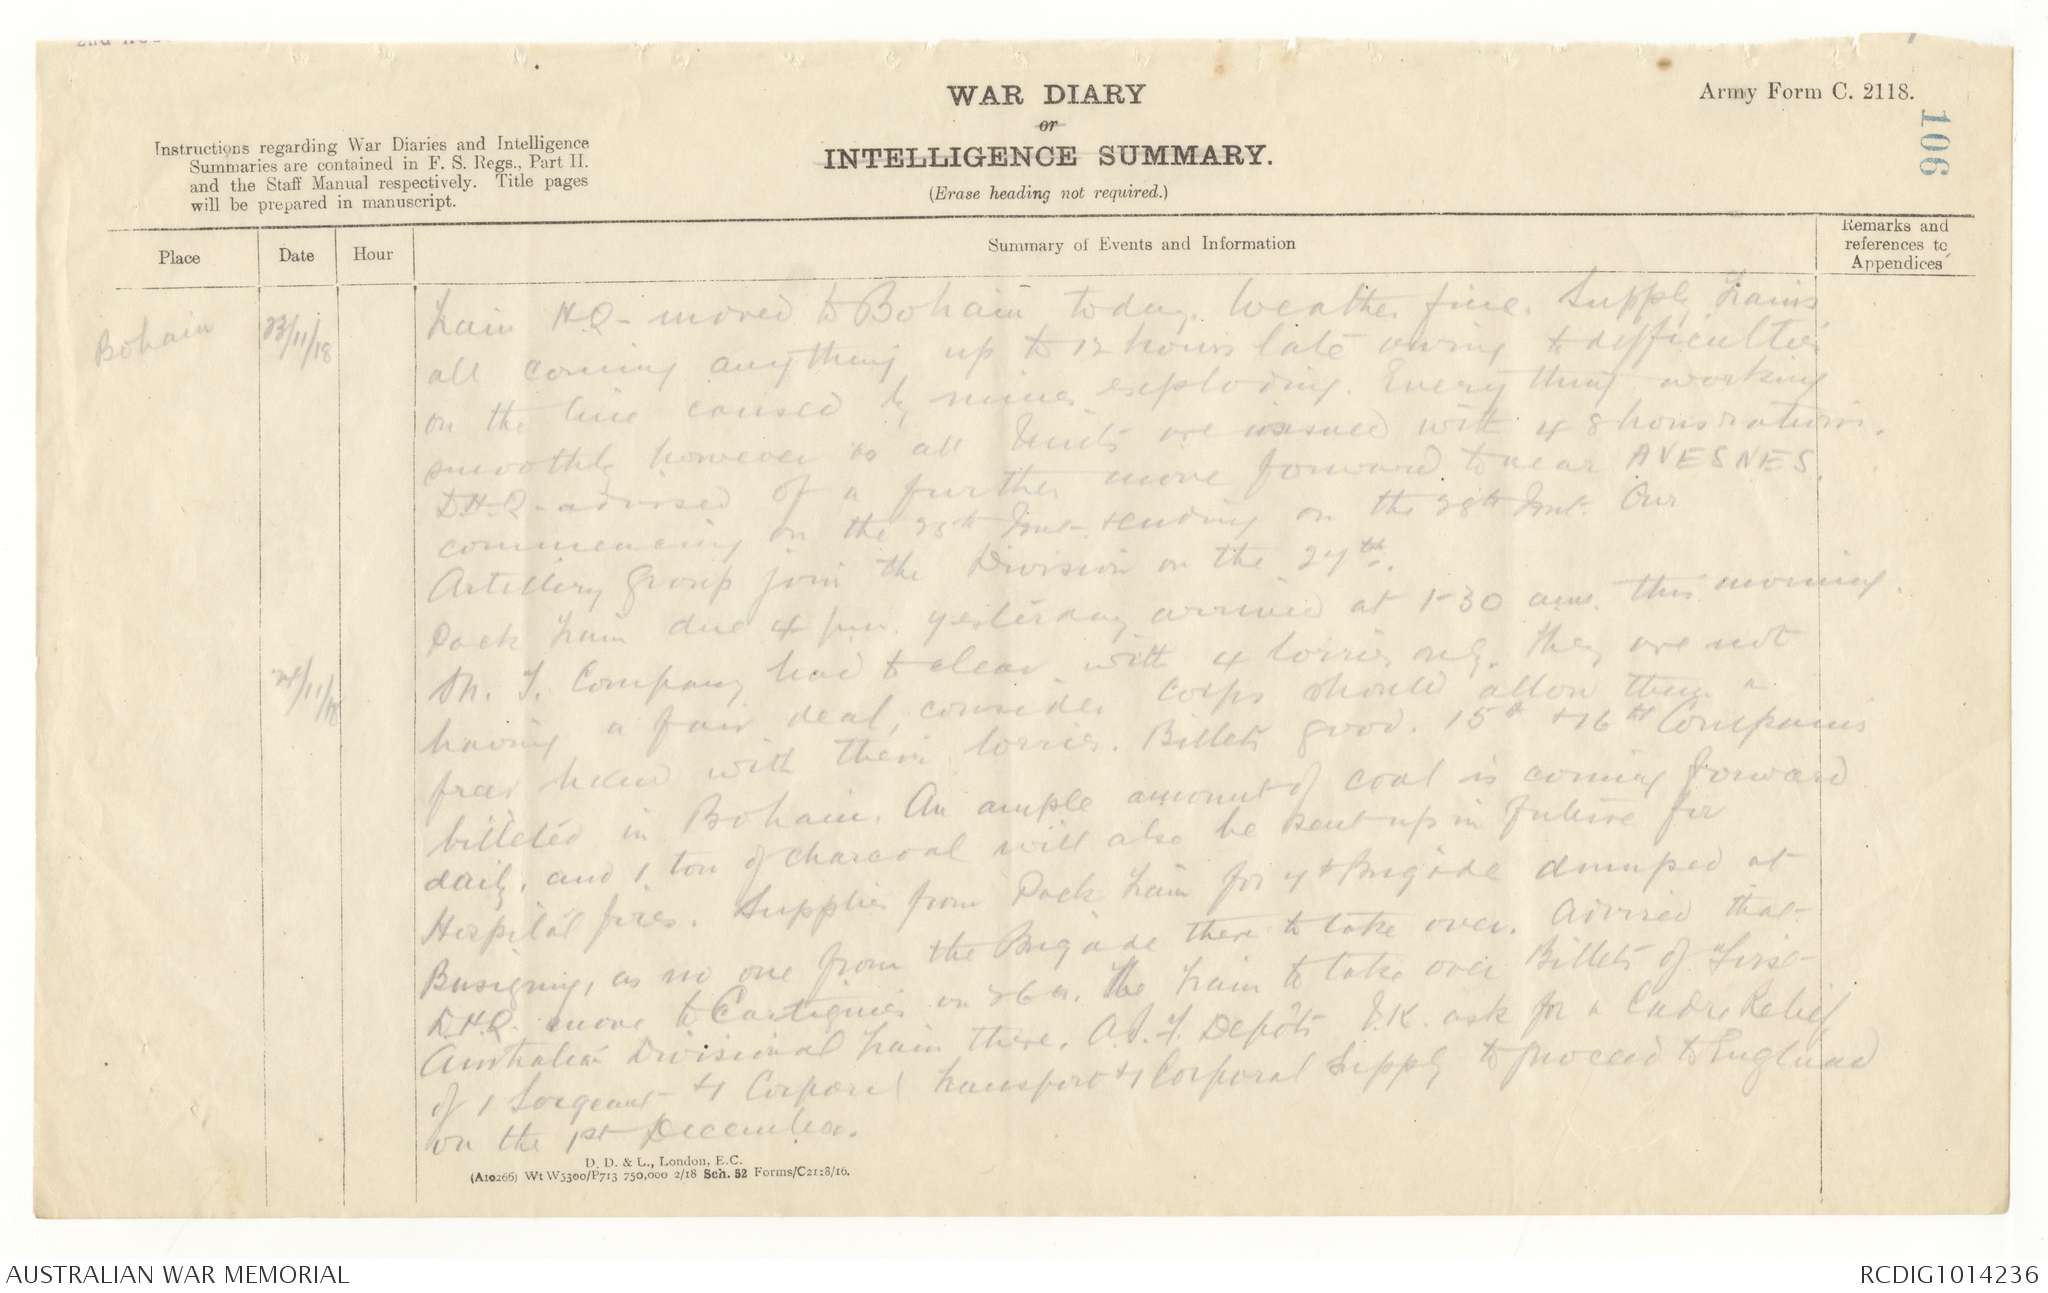 WAR DIARY
or
INTELLIGENCE SUMMARY.
(Erase heading not required.)
Army Form C. 2118.
106
Instructions regarding War Diaries and Intelligence
Summaries are contained in F. S. Regs., Part II.
and the Staff Manual respectively. Title pages
will be prepared in manuscript.
Place
Date
Hour
Summary of Events and Information
Remarks and
references to
Appendices
Bohain
23/11/18
Train H.Q. moved to Bohain today. Weather fine. Supply Trains
all coming anything up to 12 hours late owing to difficulties
on the line caused by mines exploding. Everything working
smoothly however as all Units are issued with 48 hours rations.
D.H.Q. advised of a further move forward to near AVESNES,
commencing on the 25th Inst. & ending on the 28th Inst. Our
Artillery Group join the Division on the 27th.
24/11/18
Pack Train due 4 p.m. yesterday arrived at 1-30 a.m. this morning.
M. T. Company had to clear with 4 lorries only. They are not
having a fair deal, consider Corps should allow them a
free hand with their lorries. Billets good. 15th & 16th Companies
billeted in Bohain. An ample amount of coal is coming forward
daily, and 1 ton of charcoal will also be sent up in future for
Hospital fires. Supplies from Pack Train for Brigade dumped at
Busigny, as no one from the Brigade there to take over. Advised that
D.H.Q. move to Cartignies on 26th. The Train to take over Billets of First
Australian Divisional Train there. A.I.F. Depôts U.K. ask for a Cadre Relief
of 1 Sergeant & 1 Corporal Transport & 1 Corporal Supply to proceed to England
on the 1st December.
D. D. & L., London, E.C.
(A10266) Wt W5300/P713 750,000 2/18 Sch. 52 Forms/C2118/16.
AUSTRALIAN WAR MEMORIAL
RCDIG1014236